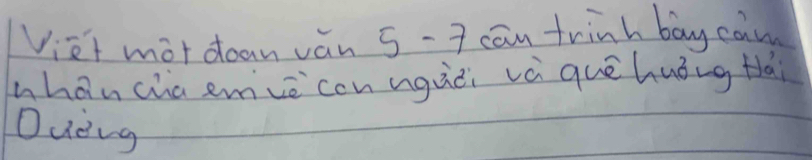 Viết một đoạn văn 5 - 7 câu trình bày cảm
nhận của em về con người và quê hương Hải
Dương